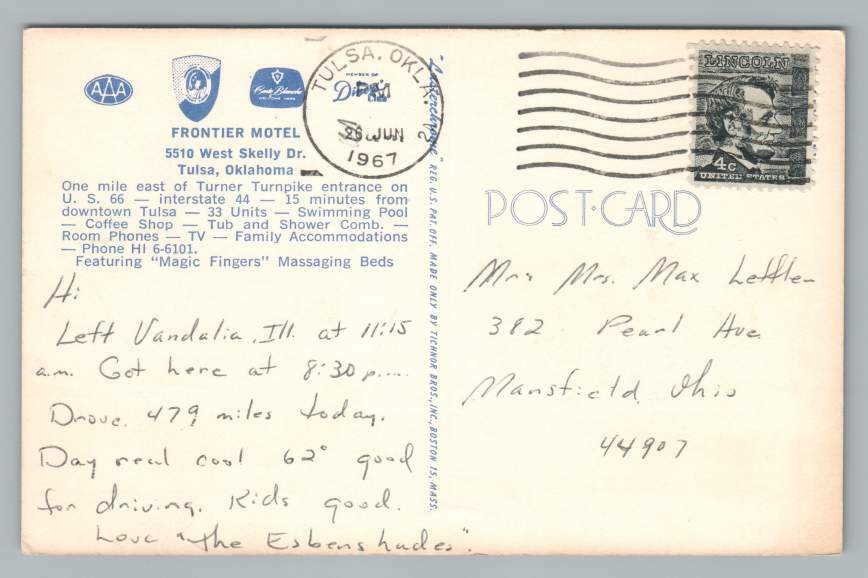 AAA
Carte Blanche
MEMBER OF
FRONTIER MOTEL
5510 West Skelly Dr.
Tulsa, Oklahoma
One mile east of Turner Turnpike entrance on
U. S. 66 — interstate 44 — 15 minutes from
downtown Tulsa — 33 Units — Swimming Pool
— Coffee Shop — Tub and Shower Comb. —
Room Phones — TV — Family Accommodations
— Phone HI 6-6101.
Featuring "Magic Fingers" Massaging Beds
Hi
Left Vandalia, Ill. at 11:15
a.m. Got here at 8:30 p.m.
Drove 479 miles today.
Day real cool 62° good
for driving. Kids good.
Love "the Esbenshades".
"Lusterchrome" REG. U.S. PAT. OFF. MADE ONLY BY TICHNOR BROS., INC., BOSTON 15, MASS.
TULSA, OKLA.
PM
26 JUN
1967
2
LINCOLN
4c
UNITED STATES
POST CARD
Mr & Mrs. Max Leffler
382 Pearl Ave.
Mansfield, Ohio
44907